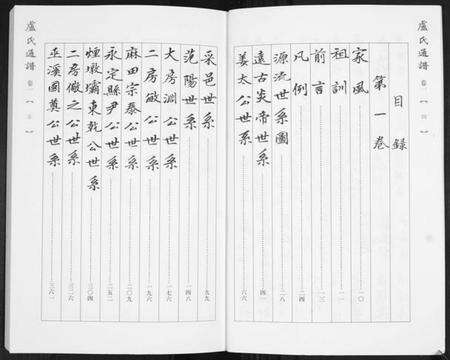 盧氏通譜 卷一
目錄
第一卷
家風 一〇
祖訓 一一
前言 一三
凡例 二四
源流世系圖 二八
遠古炎帝世系
姜太公世系 六六
采邑世系 九九
范陽世系 一四八
大房淵公世系 一七六
二房敏公世系 一九六
麻田宗泰公世系 二〇九
永定縣尹公世系 二五二
煙墩壩東乾公世系 三〇四
二房儆之公世系 三二六
巫溪國真公世系 三六一
盧氏通譜 卷一